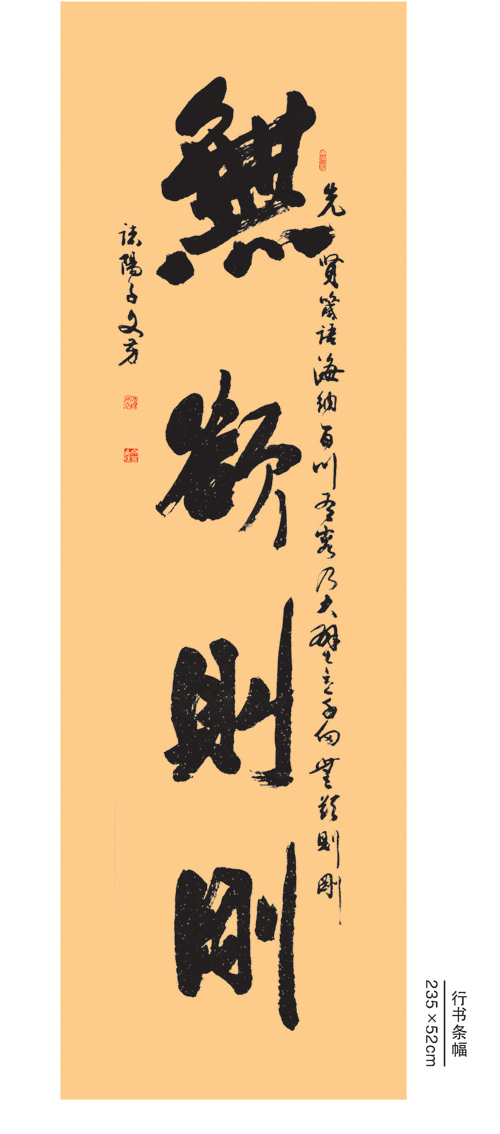 先賢箴語海納百川有容乃大壁立千仞無欲則剛
無欲則剛
陽子文芳
行书条幅
235×52cm